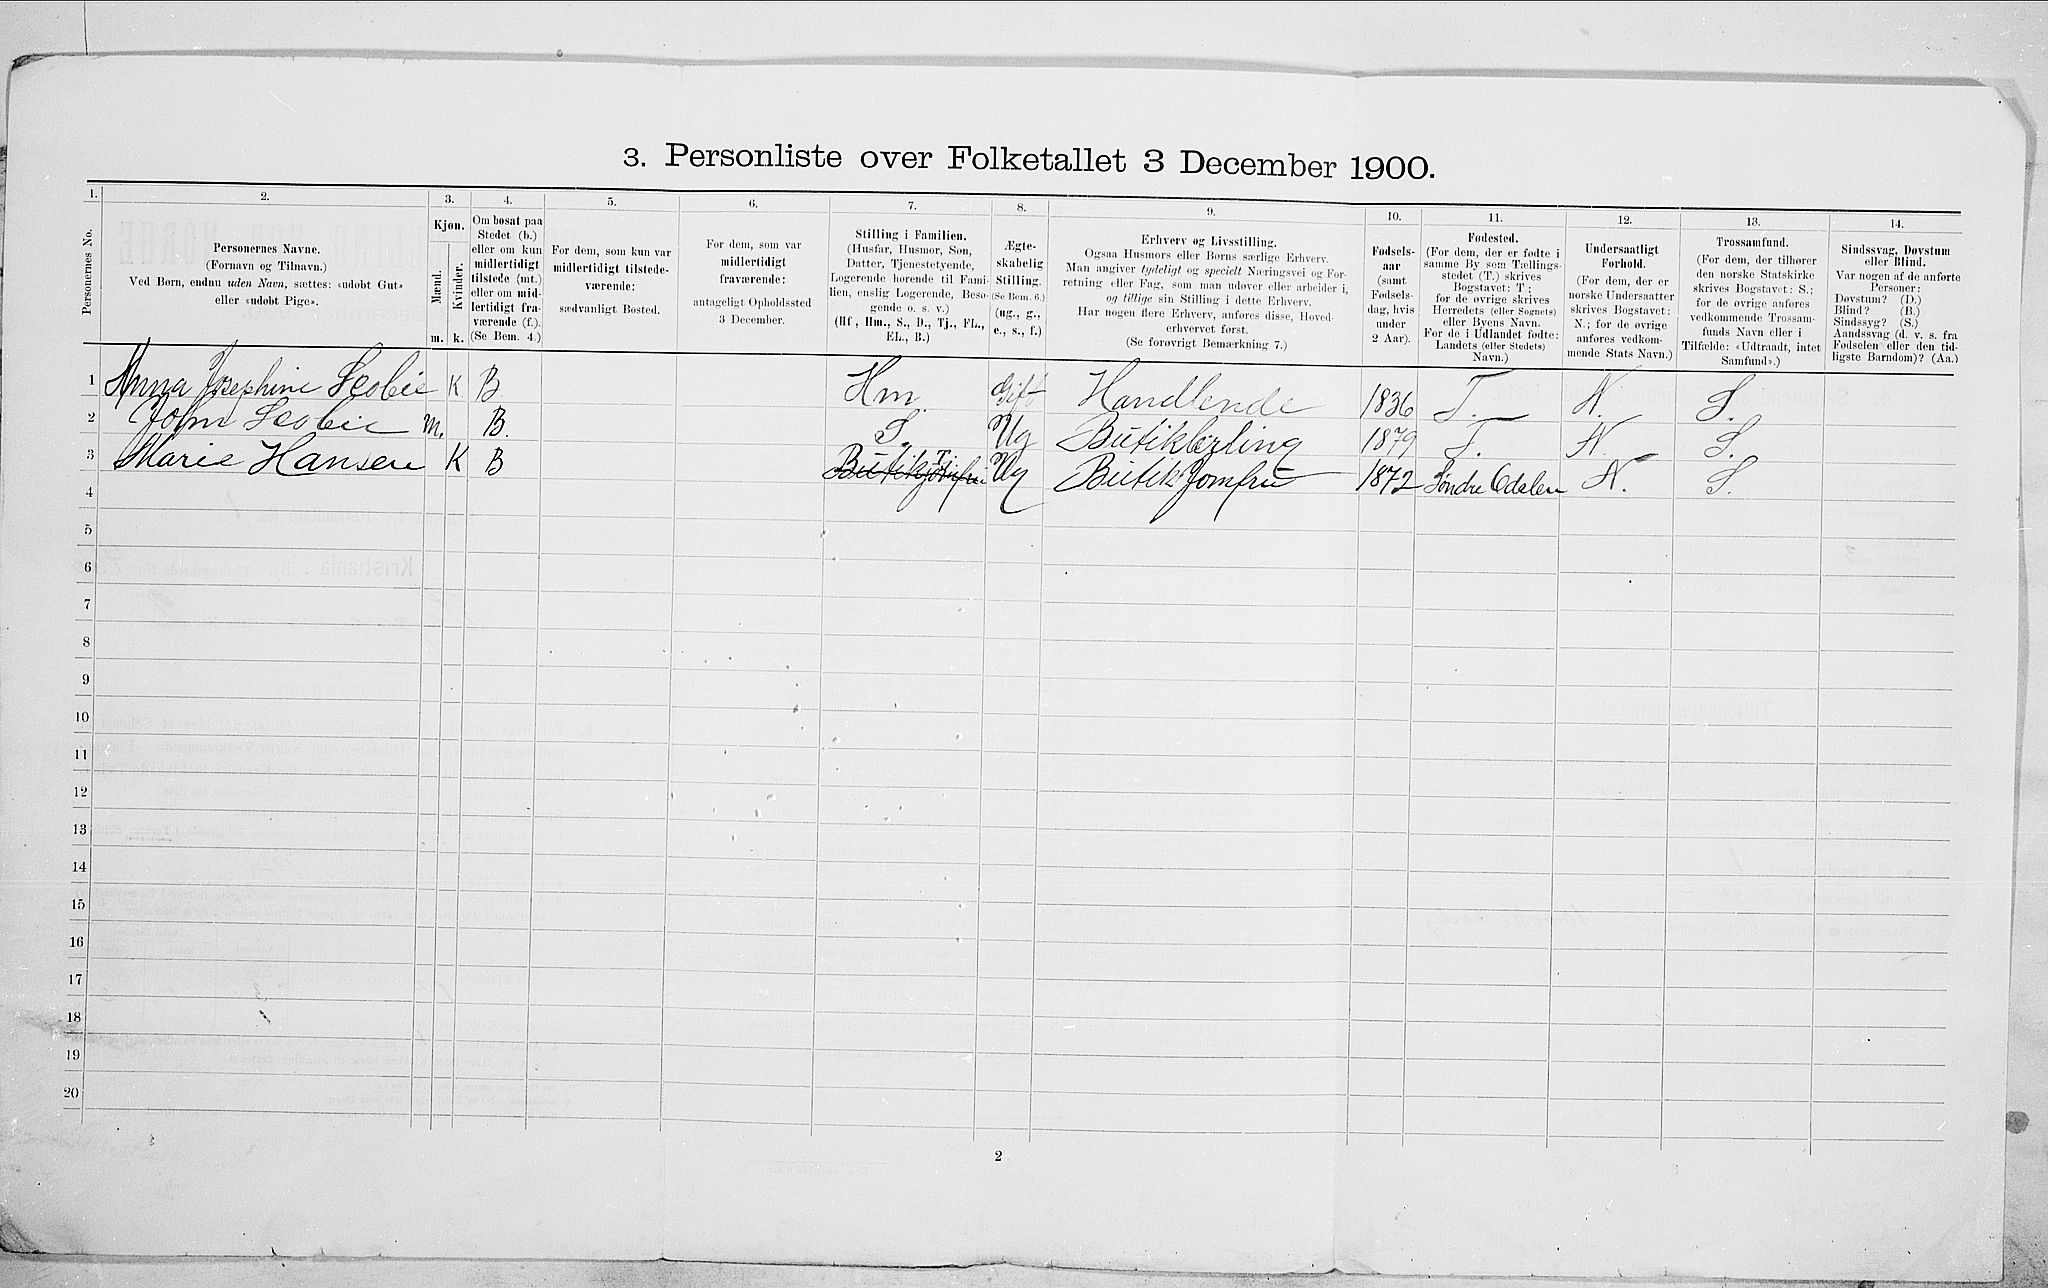 3. Personliste over Folketallet 3 December 1900.
1. 2. 3. 4. 5. 6. 7. 8. 9. 10. 11. 12. 13. 14.
Personernes No.
Personernes Navne.
(Fornavn og Tilnavn.)
Ved Børn, endnu uden Navn, sættes: «udøbt Gut»
eller «udøbt Pige».
Kjøn.
Mænd.
Kvinder.
m. k.
Om bosat paa
Stedet (b.)
eller om kun
midlertidigt
tilstede (mt.)
eller om mid-
lertidigt fra-
værende (f.).
(Se Bem. 4.)
For dem, som kun var
midlertidigt tilstede-
værende:
sædvanligt Bosted.
For dem, som var
midlertidigt
fraværende:
antageligt Opholdssted
3 December.
Stilling i Familien.
(Husfar, Husmor, Søn,
Datter, Tjenestetyende,
Logerende hørende til Fami-
lien, enslig Logerende, Besø-
gende o. s. v.)
(Hf., Hm., S., D., Tj., FL.,
EL., B.)
Ægte-
skabelig
Stilling.
(Se Bem. 6.)
(ug., g.,
e., s., f.)
Erhverv og Livsstilling.
Ogsaa Husmors eller Børns særlige Erhverv.
Man angiver tydeligt og specielt Næringsvei og For-
retning eller Fag, som man udøver eller arbeider i,
og tillige sin Stilling i dette Erhverv.
Har nogen flere Erhverv, anføres disse, Hoved-
erhvervet først.
(Se forøvrigt Bemærkning 7.)
Fødsels-
aar
(samt
Fødsels-
dag, hvis
under
2 Aar).
Fødested.
(For dem, der er fødte i
samme By som Tællings-
stedet (T.) skrives
Bogstavet: T;
for de øvrige skrives
Herredets (eller Sognets)
eller Byens Navn.
For de i Udlandet fødte:
Landets (eller Stedets)
Navn.)
Undersaatligt
Forhold.
(For dem, der er
norske Undersaatter
skrives Bogstavet:
N.; for de øvrige
anføres vedkom-
mende Stats Navn.)
Trossamfund.
(For dem, der tilhører
den norske Statskirke
skrives Bogstavet: S.;
for de øvrige anføres
vedkommende Trossam-
funds Navn eller i
Tilfælde: «Udtraadt, intet
Samfund».)
Sindssvag, Døvstum
eller Blind.
Var nogen af de anførte
Personer:
Døvstum? (D.)
Blind? (B.)
Sindssyg? (S.)
Aandssvag (d. v. s. fra
Fødselen eller den tid-
ligste Barndom)? (Aa.)
1 Anna Josephine Scobie K B Hm. Gift Handlende 1836 T. N. S.
2 John Scobie m. B. S. Ug Butikbetling 1879 T. N. S.
3 Marie Hansen K B Butikjomfru Tj. Ug Butik Jomfru 1872 Søndre Odalen N. S.
4
5
6
7
8
9
10
11
12
13
14
15
16
17
18
19
20
2